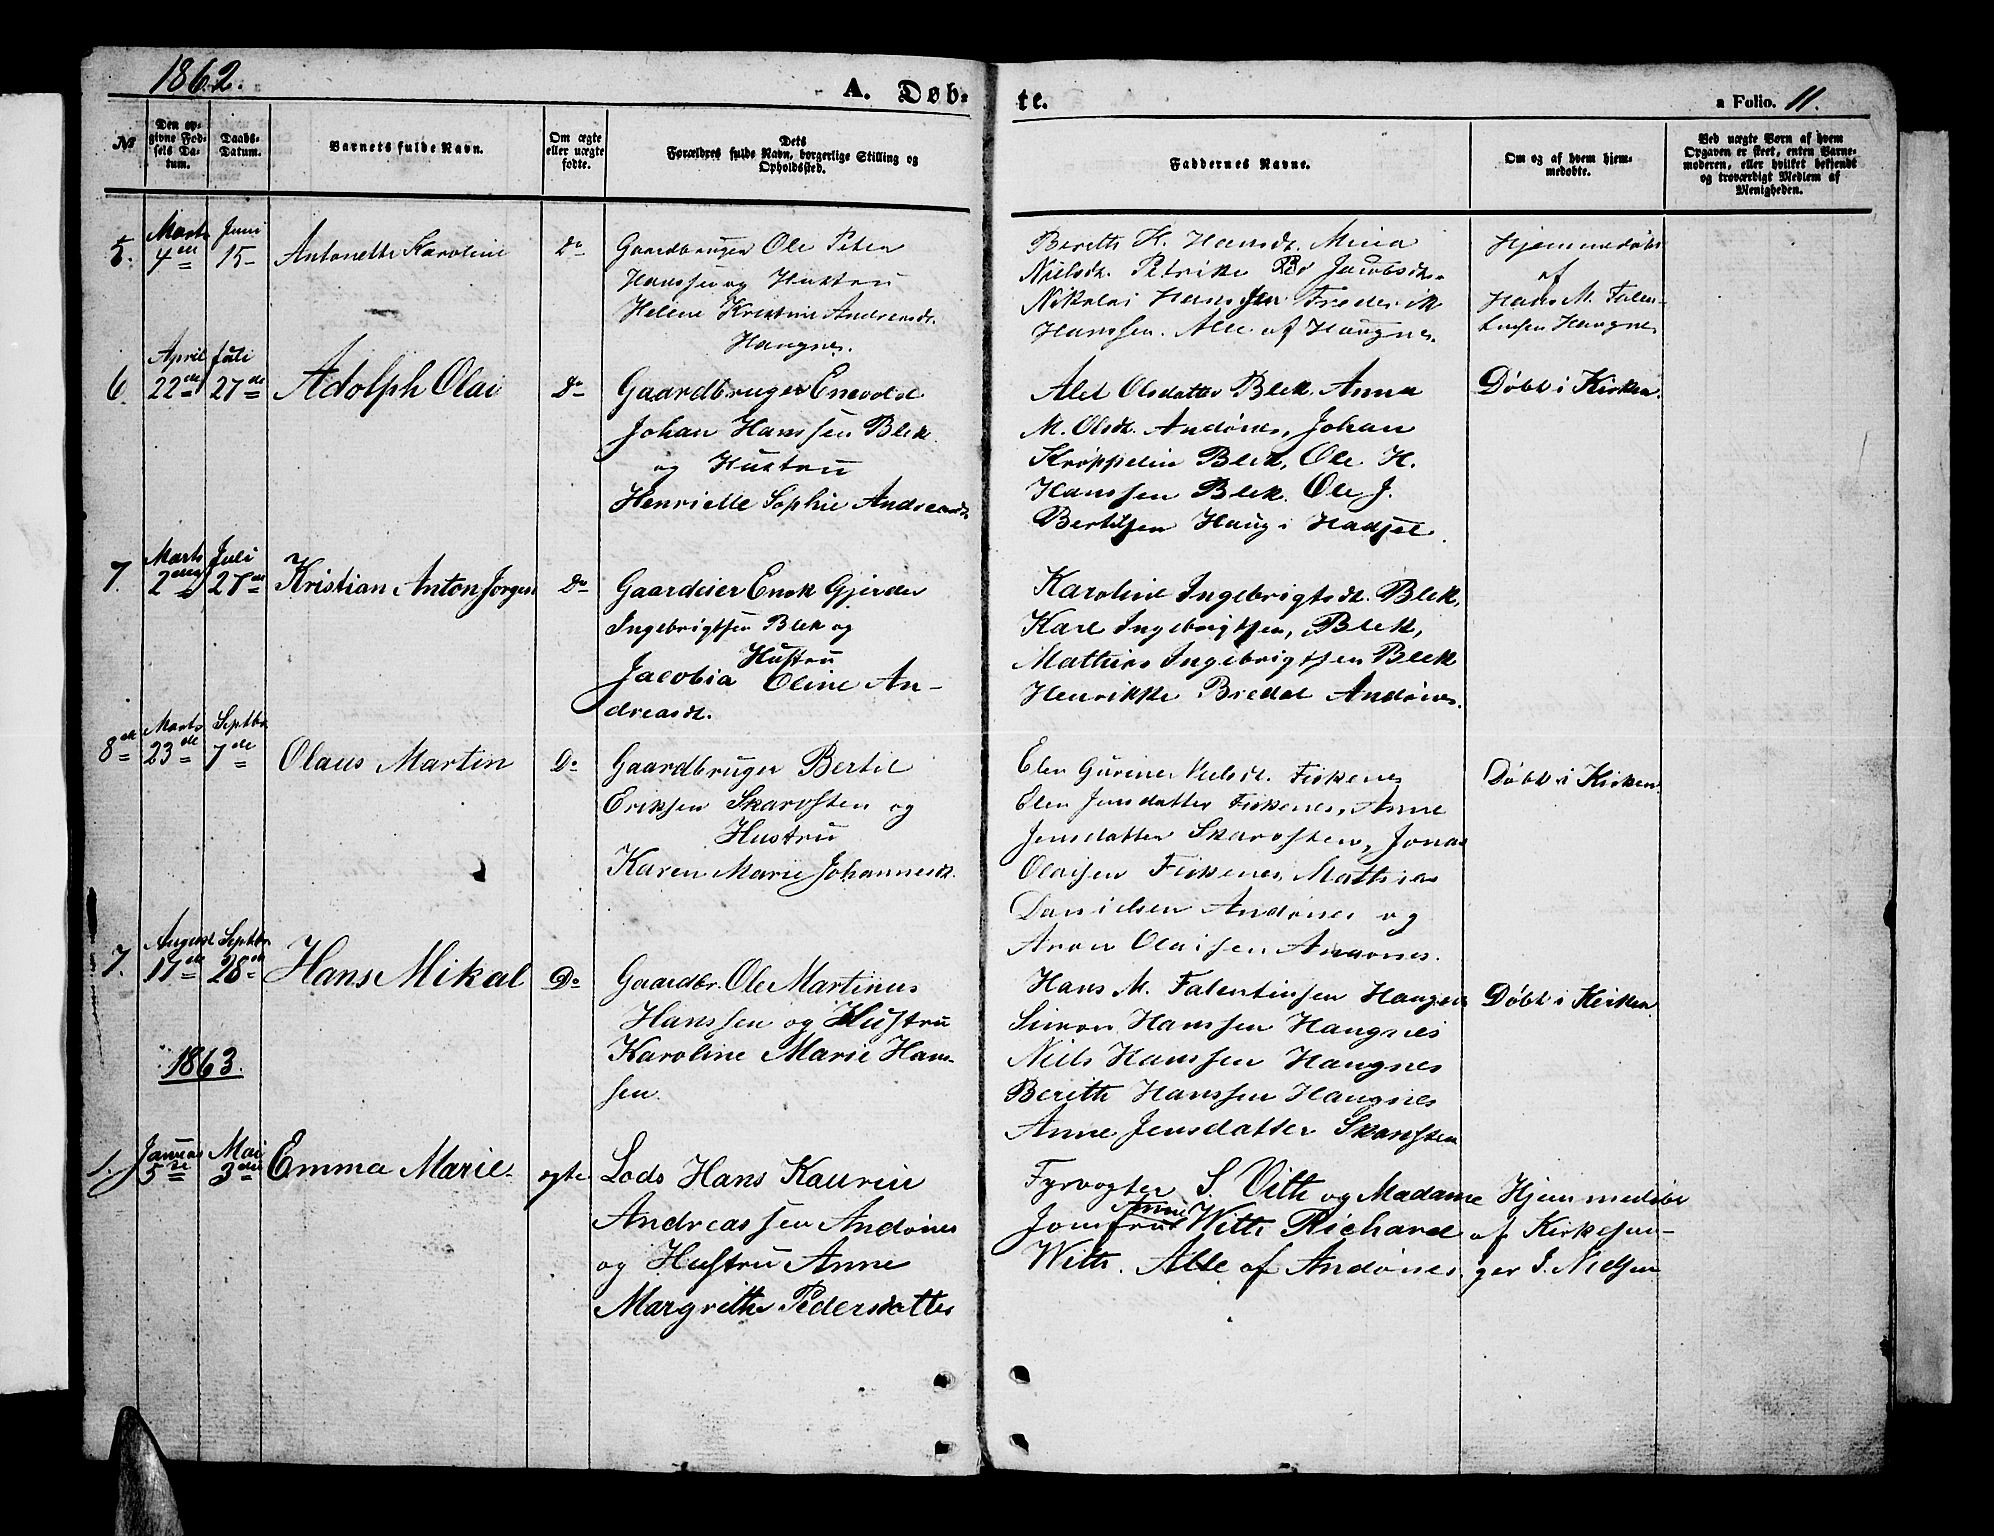 1862.
A. Døb-
te.
a Folio. 11.
M
Den op-
givne Fød-
sels Da-
tum.
Daabs-
Datum.
Barnets fulde Navn.
Om ægte
eller uægte
fødte.
Dets
Forældres fulde Navn, borgerlige Stilling og
Opholdssted.
Faddernes Navne.
Om og af hvem hjem-
medøbte.
Ved uægte Børn af hvem
Opgaven er skeet, enten Barne-
moderen, eller hvilket bekjendt
og troværdigt Medlem af
Menigheden.
5.
Marts
4en
Juni
15-
Antonette Karoline
Do
Gaardbruger Ole Peter
Hanssen og Hustru
Helene Kristine Andreasdt.
Haugnes.
Berith K. Hansdt. Mina
Nielsdt. Petrike Bo Jacobsdt.
Nikolai Hanssen Frederik
Hanssen. Alle af Haugnes.
Hjemmedøbt
af
Hans M. Falen-
tinsen Haugnes
6.
April
22de
Juli
27de
Adolph Olai
Do
Gaardbruger Enevold
Johan Hanssen Blek
og Hustru
Henriette Sophie Andreasdt.
Alet Olsdatter Blek. Anna
M. Olsdt. Andønes, Johan
Krøppelin Blek, Ole H.
Hanssen Blek. Ole J.
Bertilsen Haug i Hadsel.
Døbt i Kirken.
7.
Marts
2den
Juli
27de
Kristian Anton Jørgen
Do
Gaardeier Enok Gjerder
Ingebrigtsen Blek og
Hustru
Jacobia Oline An-
dreasdt.
Karoline Ingebrigtsdt. Blek,
Karl Ingebrigtsen, Blek,
Mathias Ingebrigtsen Blek
Henrikke Bredal Andønes.
8de
Marts
23de
Septbr
7de
Olaus Martin
Do
Gaardbruger Bertil
Eriksen Skarvsten og
Hustru
Karen Marie Johannesdt.
Elen Gurine Nielsdt. Fiskenes
Elen Jensdatter Fiskenes, Anne
Jensdatter Skarvsten, Jonas
Olaisen Fiskenes, Mathias
Danielsen Andønes og
Aron Olaisen Andønes.
Døbt i Kirken
7.
August
17de
Septbr
28de
Hans Mikal
Do
Gaardbr. Ole Martinus
Hanssen og Hustru
Karoline Marie Hans-
sen.
Hans M. Falentinsen Haugnes
Simon Hanssen Haugnes
Niels Hanssen Haugnes
Berith Hanssen Haugnes
Anne Jensdatter Skarvsten
Døbt i Kirken
1863.
1.
Januar
5te
Mai
3die
Emma Marie
ægte
Lods Hans Kaurin
Andreassen Andønes
og Hustru Anne
Margrethe Pedersdatter
Fyrvogter S. Vith og Madame
Anne
Jomfrue With Richard
With. Alle af Andønes.
Hjemmedøbt
af Kirkesan-
ger J. Nielsen